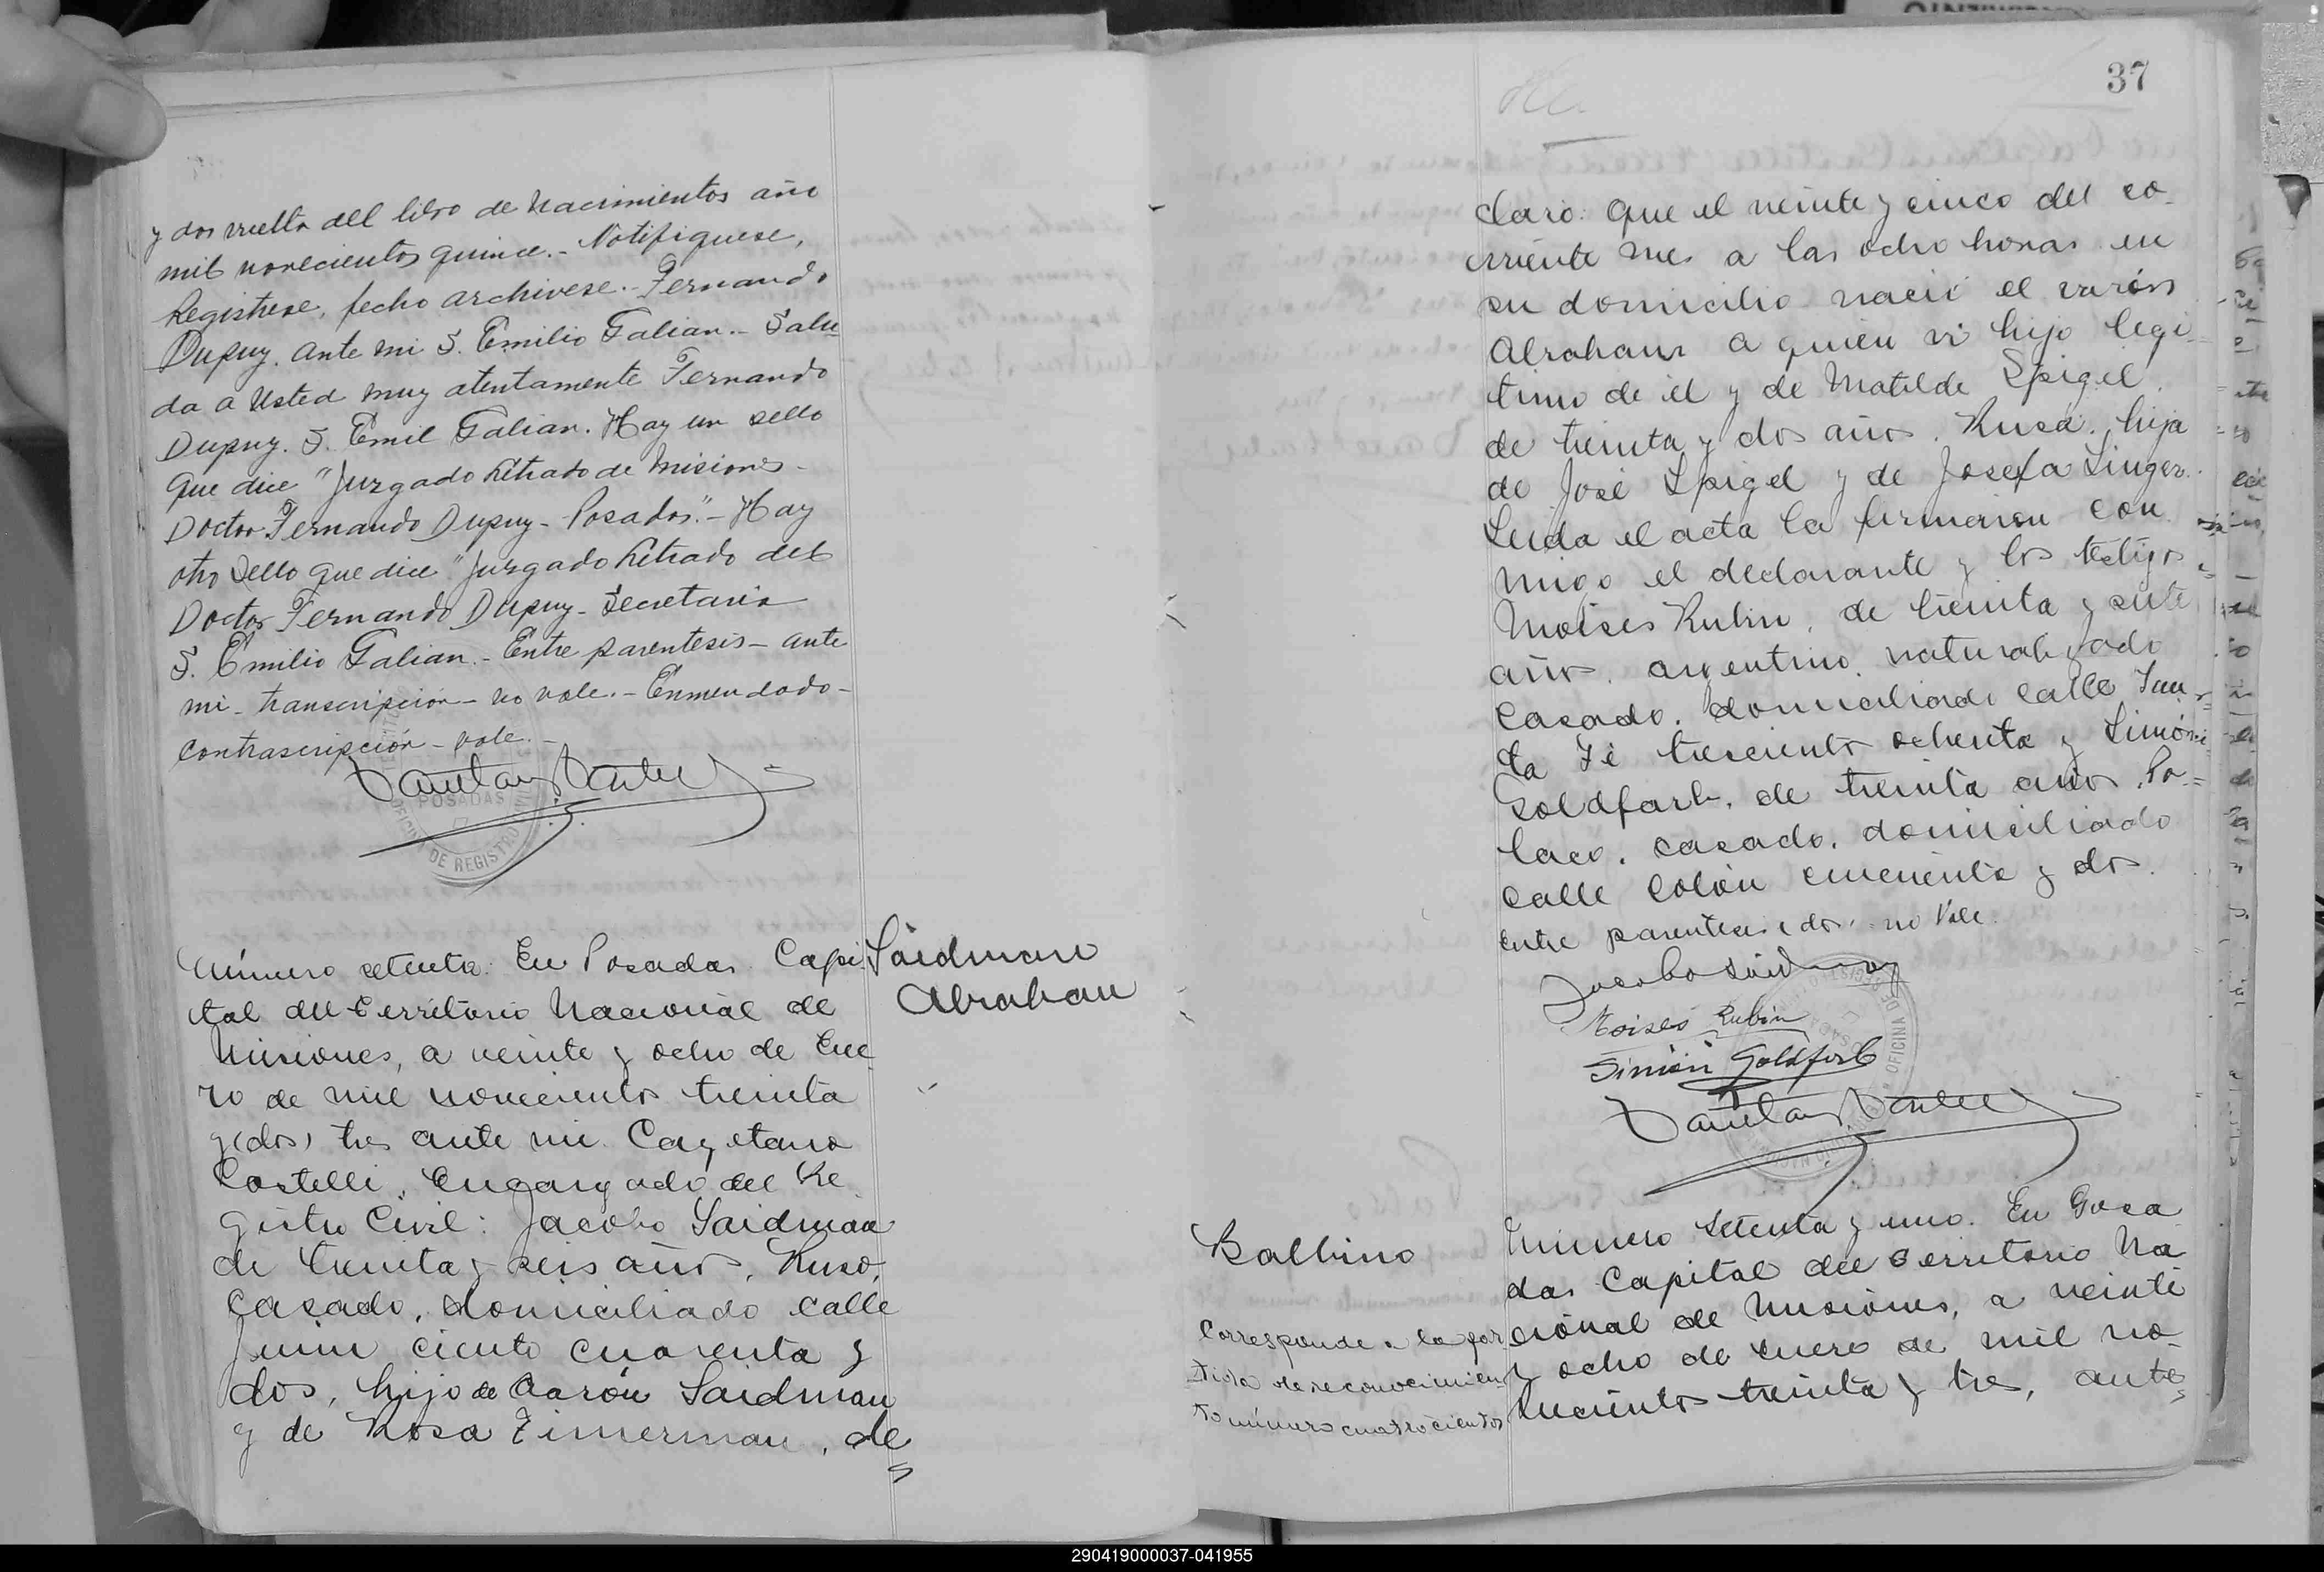 y dos vuelta del libro de Nacimientos año
mil novecientos quince.- Notifiquese,
Registrese, fecho archivese.- Fernando
Dupuy. Ante mi S. Emilio Galian.- Salu
da a Usted muy atentamente Fernando
Dupuy. S. Emil Galian. Hay un sello
que dice "Juzgado Letrado de Misiones-
Doctor Fernando Dupuy- Posadas".- Hay
otro Sello que dice "Juzgado Letrado del
Doctor Fernando Dupuy- Secretaria
S. Emilio Galian.- Entre parentesis- ante
mi- transcripción- no vale.- Enmendado-
contrascripción- vale.-
POSADAS
OFICINA DE REGISTRO
Número setenta. En Posadas Capi
tal del Territorio Nacional de
Misiones, a veinte y ocho de Ene
ro de mil novecientos treinta
y (dos) tres ante mi Cayetano
Castelli, Encargado del Re
gistro Civil: Jacobo Saidman
de treinta y seis años, Ruso,
casado, domiciliado calle
Junin ciento cuarenta y
dos, hijo de Aarón Saidman
y de Rosa Zimerman, de
Saidman
Abraham
37
claro: Que el veinte y cinco del co-
rriente mes a las ocho horas en
su domicilio nació el varón
Abraham a quien vi hijo legi-
timo de él y de Matilde Spigel
de treinta y dos años, Rusa, hija
de José Spigel y de Josefa Singer.
Leida el acta la firmaron con
migo el declarante y los testigos
Moises Rubin, de treinta y siete
años, argentino naturalizado
casado, domiciliado calle San-
ta Fé trescientos ochenta y Simón
Goldfarb, de treinta años, Po-
laco, casado, domiciliado
calle Colón cincuenta y dos.
Entre parentesis: dos: no Vale.
Jacobo Saidman
Moises Rubin
Simón Goldfarb
OFICINA DE REGISTRO
Balbino
Corresponde a la par
tida de reconocimien
to número cuatrocientos
Número setenta y uno. En Posa
das Capital del Territorio Na
cional de Misiones, a veinte
y ocho de Enero de mil no-
vecientos treinta y tres, ante
290419000037-041955